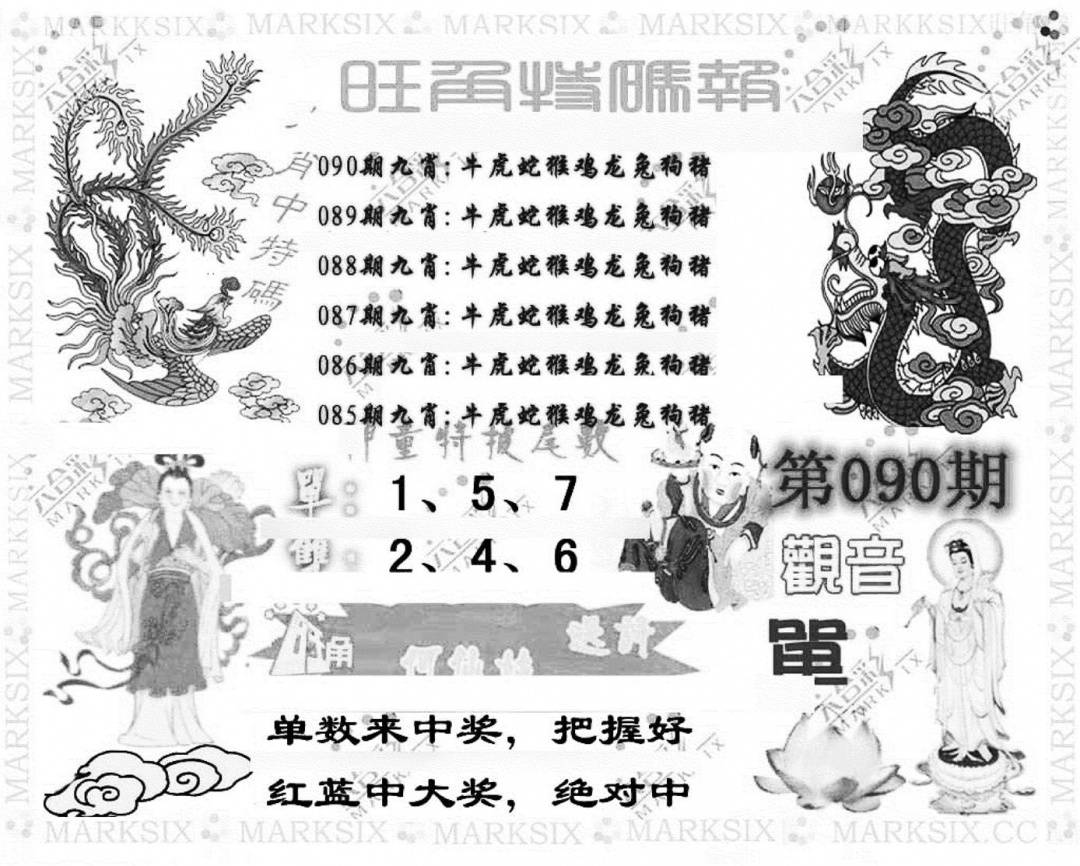 MARKSIX MARKSIX MARKSIX MARKSIX MARKKSIX
旺角特碼報
肖中特碼
090期九肖:牛虎蛇猴鸡龙兔狗猪
089期九肖:牛虎蛇猴鸡龙兔狗猪
088期九肖:牛虎蛇猴鸡龙兔狗猪
087期九肖:牛虎蛇猴鸡龙兔狗猪
086期九肖:牛虎蛇猴鸡龙兔狗猪
085期九肖:牛虎蛇猴鸡龙兔狗猪
童特报尾數
單:1、5、7
雙:2、4、6
第090期
觀音
單
何仙姑
单数来中奖,把握好
红蓝中大奖,绝对中
MARKSIX MARKSIX MARKSIX MARKSIX MARKSIX.CC